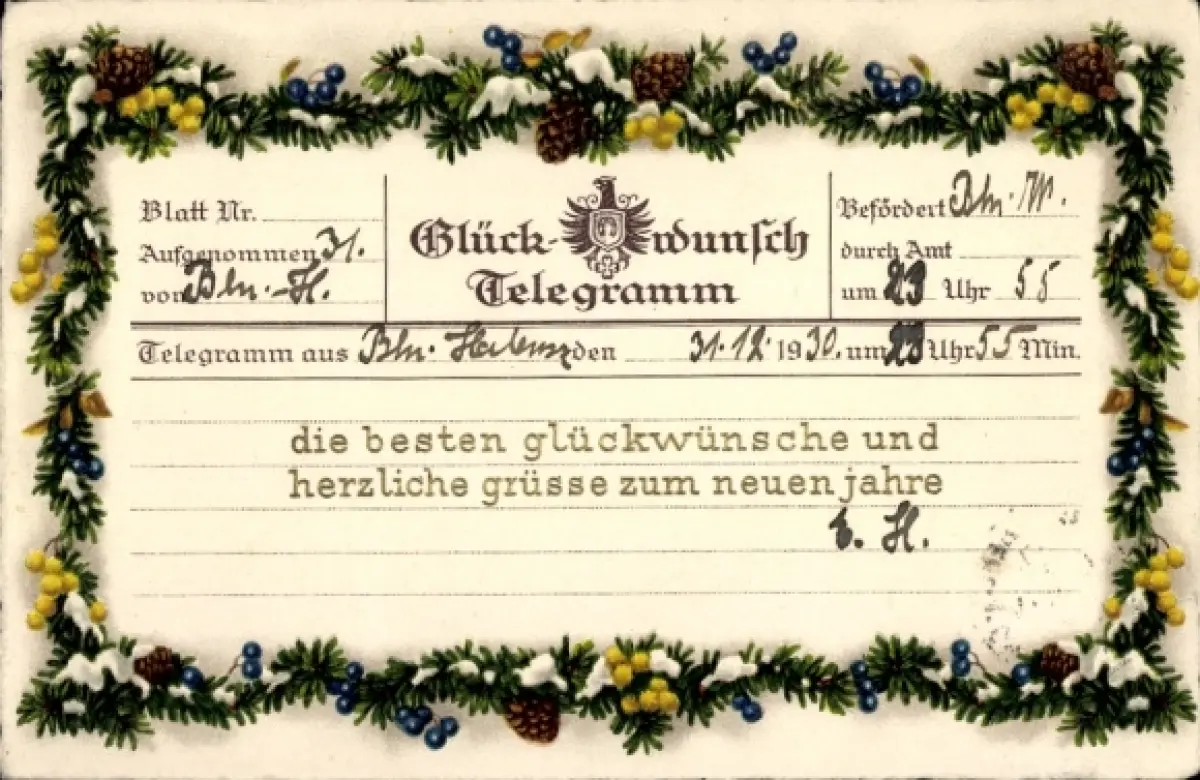 Blatt Nr.
Aufgenommen 31.
von Bln.-H.
Glück-wunsch
Telegramm
Befördert Bln. W.
durch Amt
um 23 Uhr 55
Telegramm aus Bln. den 31.12.1930. um 23 Uhr 55 Min.
die besten glückwünsche und
herzliche grüsse zum neuen jahre
H.